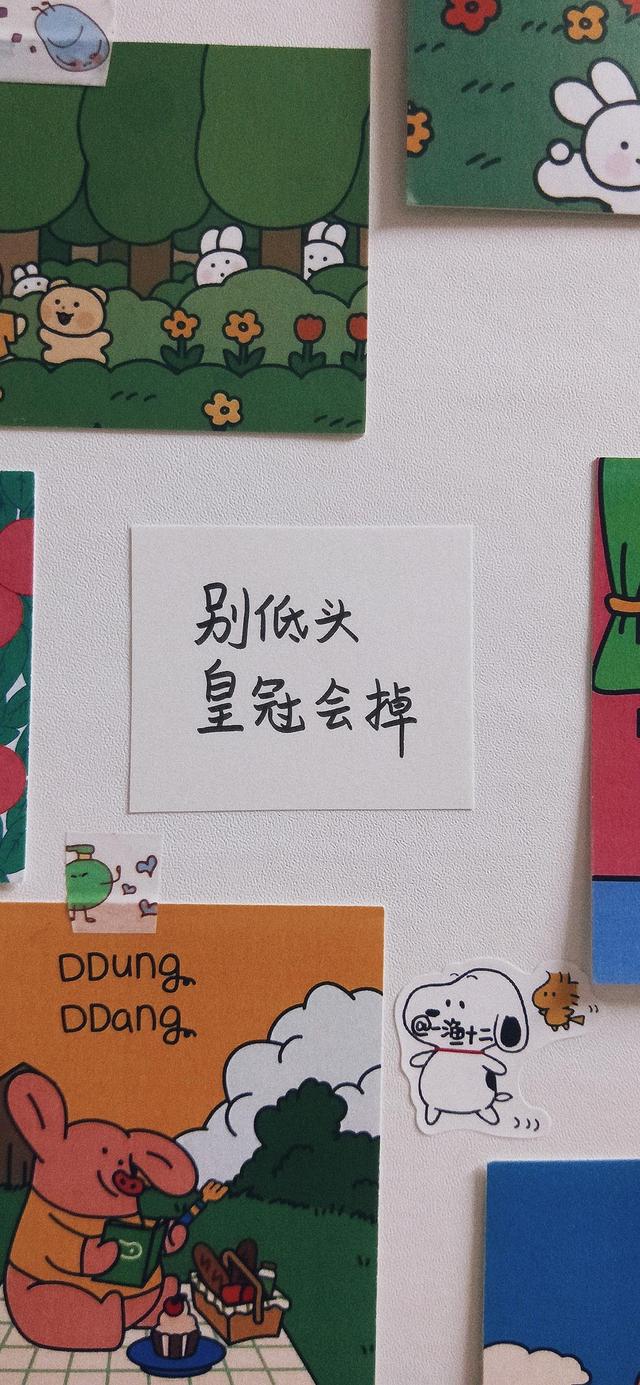 别低头
皇冠会掉
DDung
DDang
@一渔十二